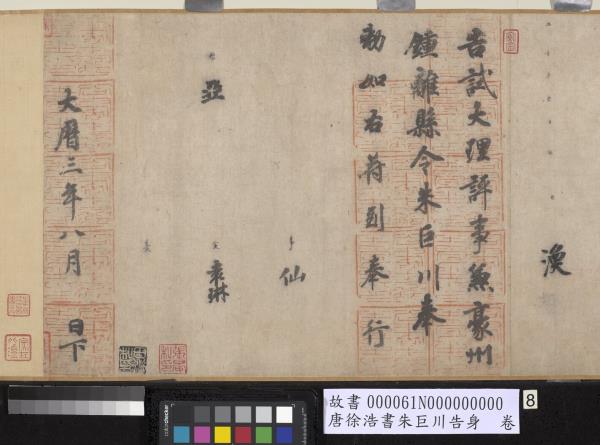 渙
告試大理評事兼豪州
鍾離縣令朱巨川奉
勅如右符到奉行
仙
袁琳
亞
大曆三年八月 日下
故書 000061N000000000
唐徐浩書朱巨川告身 卷
8